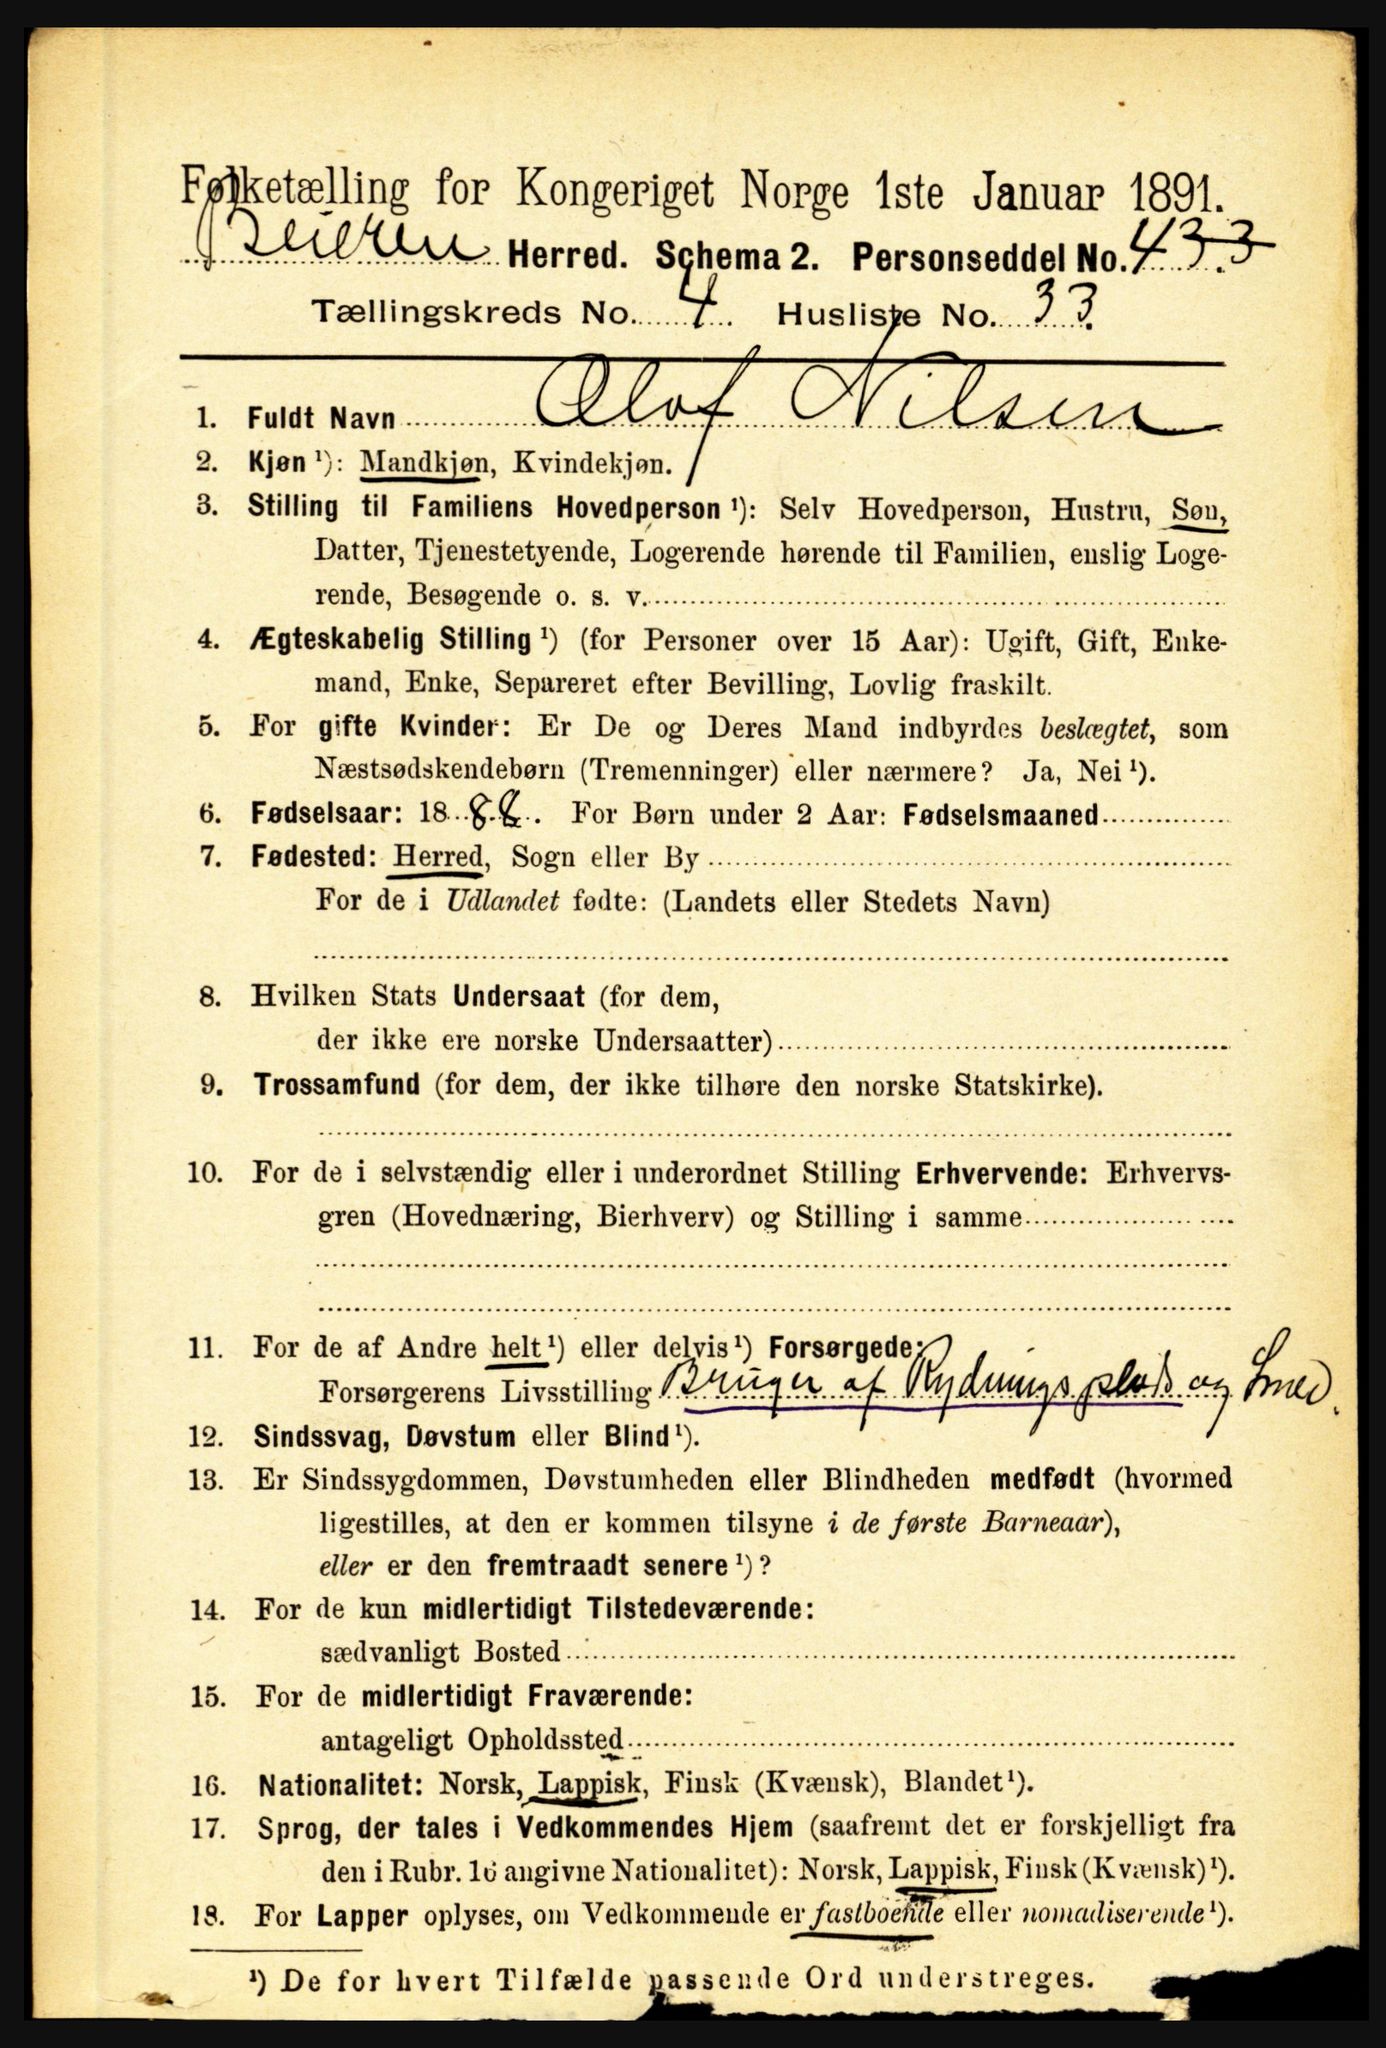 Folketælling for Kongeriget Norge 1ste Januar 1891.
Beieren Herred. Schema 2. Personseddel No. 433
Tællingskreds No. 4. Husliste No. 33.
1. Fuldt Navn Olof Nilsen
2. Kjøn ¹): Mandkjøn, Kvindekjøn.
3. Stilling til Familiens Hovedperson ¹): Selv Hovedperson, Hustru, Søn,
Datter, Tjenestetyende, Logerende hørende til Familien, enslig Loge-
rende, Besøgende o. s. v.
4. Ægteskabelig Stilling ¹) (for Personer over 15 Aar): Ugift, Gift, Enke-
mand, Enke, Separeret efter Bevilling, Lovlig fraskilt.
5. For gifte Kvinder: Er De og Deres Mand indbyrdes beslægtet, som
Næstsødskendebørn (Tremenninger) eller nærmere? Ja, Nei ¹).
6. Fødselsaar: 18 . For Børn under 2 Aar: Fødselsmaaned
7. Fødested: Herred, Sogn eller By
For de i Udlandet fødte: (Landets eller Stedets Navn)
8. Hvilken Stats Undersaat (for dem,
der ikke ere norske Undersaatter)
9. Trossamfund (for dem, der ikke tilhøre den norske Statskirke).
10. For de i selvstændig eller i underordnet Stilling Erhvervende: Erhvervs-
gren (Hovednæring, Bierhverv) og Stilling i samme
11. For de af Andre helt ¹) eller delvis ¹) Forsørgede:
Forsørgerens Livsstilling Bruger af Rydningsplads og Smed.
12. Sindssvag, Døvstum eller Blind ¹).
13. Er Sindssygdommen, Døvstumheden eller Blindheden medfødt (hvormed
ligestilles, at den er kommen tilsyne i de første Barneaar),
eller er den fremtraadt senere ¹)?
14. For de kun midlertidigt Tilstedeværende:
sædvanligt Bosted
15. For de midlertidigt Fraværende:
antageligt Opholdssted
16. Nationalitet: Norsk, Lappisk, Finsk (Kvænsk), Blandet ¹).
17. Sprog, der tales i Vedkommendes Hjem (saafremt det er forskjelligt fra
den i Rubr. 16 angivne Nationalitet): Norsk, Lappisk, Finsk (Kvænsk) ¹).
18. For Lapper oplyses, om Vedkommende er fastboende eller nomadiserende ¹).
¹) De for hvert Tilfælde passende Ord understreges.